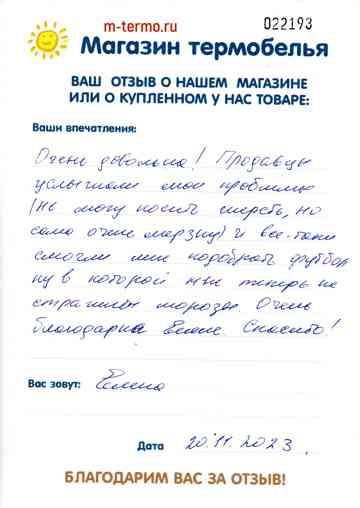 m-termo.ru
022193
Магазин термобелья
ВАШ ОТЗЫВ О НАШЕМ МАГАЗИНЕ
ИЛИ О КУПЛЕННОМ У НАС ТОВАРЕ:
Ваши впечатления:
Очень довольна! Продавцы
услышали мою проблему
(не могу носить шерсть, но
сама очень мерзну) и все-таки
смогли мне подобрать футбол
ку в которой мне теперь не
страшны морозы. Очень
благодарна Елене. Спасибо!
Вас зовут: Елена
Дата 20.11.2023.
БЛАГОДАРИМ ВАС ЗА ОТЗЫВ!